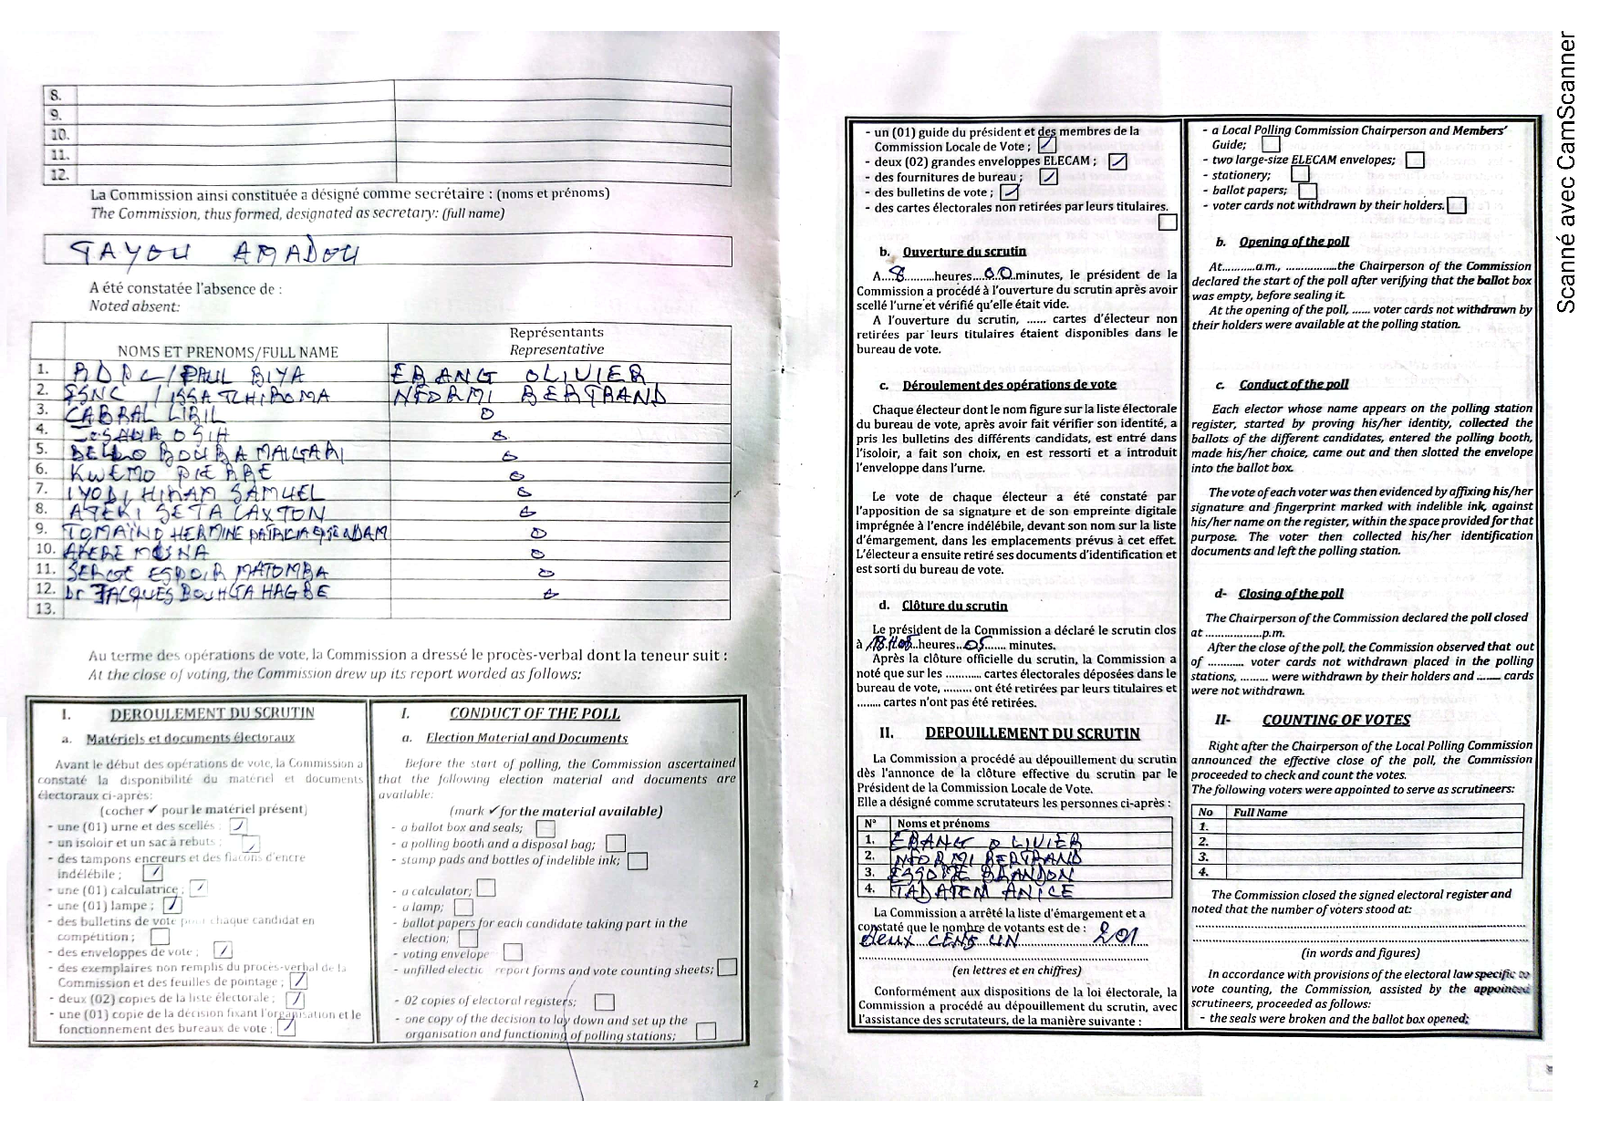 8.
9.
10.
11.
12.
La Commission ainsi constituée a désigné comme secrétaire : (noms et prénoms)
The Commission, thus formed, designated as secretary: (full name)
TAYOU AMADOU
A été constatée l'absence de :
Noted absent:
NOMS ET PRENOMS/FULL NAME
Représentants
Representative
1. RDPC/PAUL BIYA EBANG OLIVIER
2. FSNC / ISSA TCHIROMA NFORMI BERTRAND
3. CABRAL LIBII 0
4. OSIH
5. BELLO BOUBA MAIGARI
6. KWEMO PIERRE
7. IYODI HIRAM SAMUEL
8. ATEKI SETA CAXTON
9. TOMAINO HERMINE PATRICIA
10. AKERE MUNA
11. SERGE ESPOIR MATOMBA
12. Dr JACQUES BOUHGA HAGBE
13.
Au terme des opérations de vote, la Commission a dressé le procès-verbal dont la teneur suit :
At the close of voting, the Commission drew up its report worded as follows:
I. DEROULEMENT DU SCRUTIN
a. Matériels et documents électoraux
Avant le début des opérations de vote, la Commission a
constaté la disponibilité du matériel et documents
électoraux ci-après:
(cocher ✓ pour le matériel présent)
- une (01) urne et des scellés ;
- un isoloir et un sac à rebuts ;
- des tampons encreurs et des flacons d'encre
indélébile ;
- une (01) calculatrice ;
- une (01) lampe ;
- des bulletins de vote pour chaque candidat en
compétition ;
- des enveloppes de vote ;
- des exemplaires non remplis du procès-verbal de la
Commission et des feuilles de pointage ;
- deux (02) copies de la liste électorale ;
- une (01) copie de la décision fixant l'organisation et le
fonctionnement des bureaux de vote ;
I. CONDUCT OF THE POLL
a. Election Material and Documents
Before the start of polling, the Commission ascertained
that the following election material and documents are
available:
(mark ✓ for the material available)
- a ballot box and seals;
- a polling booth and a disposal bag;
- stamp pads and bottles of indelible ink;
- a calculator;
- a lamp;
- ballot papers for each candidate taking part in the
election;
- voting envelope
- unfilled report forms and vote counting sheets;
- 02 copies of electoral registers;
- one copy of the decision to lay down and set up the
organisation and functioning of polling stations;
2
- un (01) guide du président et des membres de la
Commission Locale de Vote ;
- deux (02) grandes enveloppes ELECAM ;
- des fournitures de bureau ;
- des bulletins de vote ;
- des cartes électorales non retirées par leurs titulaires.
b. Ouverture du scrutin
A...8.........heures...00.minutes, le président de la
Commission a procédé à l'ouverture du scrutin après avoir
scellé l'urne et vérifié qu'elle était vide.
A l'ouverture du scrutin, ...... cartes d'électeur non
retirées par leurs titulaires étaient disponibles dans le
bureau de vote.
c. Déroulement des opérations de vote
Chaque électeur dont le nom figure sur la liste électorale
du bureau de vote, après avoir fait vérifier son identité, a
pris les bulletins des différents candidats, est entré dans
l'isoloir, a fait son choix, en est ressorti et a introduit
l'enveloppe dans l'urne.
Le vote de chaque électeur a été constaté par
l'apposition de sa signature et de son empreinte digitale
imprégnée à l'encre indélébile, devant son nom sur la liste
d'émargement, dans les emplacements prévus à cet effet.
L'électeur a ensuite retiré ses documents d'identification et
est sorti du bureau de vote.
d. Clôture du scrutin
Le président de la Commission a déclaré le scrutin clos
à 18H05.heures..05...... minutes.
Après la clôture officielle du scrutin, la Commission a
noté que sur les ............ cartes électorales déposées dans le
bureau de vote, ......... ont été retirées par leurs titulaires et
........ cartes n'ont pas été retirées.
II. DEPOUILLEMENT DU SCRUTIN
La Commission a procédé au dépouillement du scrutin
dès l'annonce de la clôture effective du scrutin par le
Président de la Commission Locale de Vote.
Elle a désigné comme scrutateurs les personnes ci-après :
N° Noms et prénoms
1. EBANG OLIVIER
2. NFORMI BERTRAND
3. ESSOME BRANDON
4. TADATEM ANICE
La Commission a arrêté la liste d'émargement et a
constaté que le nombre de votants est de :
deux CENT UN 201
(en lettres et en chiffres)
Conformément aux dispositions de la loi électorale, la
Commission a procédé au dépouillement du scrutin, avec
l'assistance des scrutateurs, de la manière suivante :
- a Local Polling Commission Chairperson and Members'
Guide;
- two large-size ELECAM envelopes;
- stationery;
- ballot papers;
- voter cards not withdrawn by their holders.
b. Opening of the poll
At...........a.m., .................the Chairperson of the Commission
declared the start of the poll after verifying that the ballot box
was empty, before sealing it.
At the opening of the poll, ...... voter cards not withdrawn by
their holders were available at the polling station.
c. Conduct of the poll
Each elector whose name appears on the polling station
register, started by proving his/her identity, collected the
ballots of the different candidates, entered the polling booth,
made his/her choice, came out and then slotted the envelope
into the ballot box.
The vote of each voter was then evidenced by affixing his/her
signature and fingerprint marked with indelible ink, against
his/her name on the register, within the space provided for that
purpose. The voter then collected his/her identification
documents and left the polling station.
d- Closing of the poll
The Chairperson of the Commission declared the poll closed
at ..................p.m.
After the close of the poll, the Commission observed that out
of ........... voter cards not withdrawn placed in the polling
stations, ......... were withdrawn by their holders and ........ cards
were not withdrawn.
II- COUNTING OF VOTES
Right after the Chairperson of the Local Polling Commission
announced the effective close of the poll, the Commission
proceeded to check and count the votes.
The following voters were appointed to serve as scrutineers:
No Full Name
1.
2.
3.
4.
The Commission closed the signed electoral register and
noted that the number of voters stood at:
(in words and figures)
In accordance with provisions of the electoral law specific to
vote counting, the Commission, assisted by the appointed
scrutineers, proceeded as follows:
- the seals were broken and the ballot box opened;
Scanné avec CamScanner